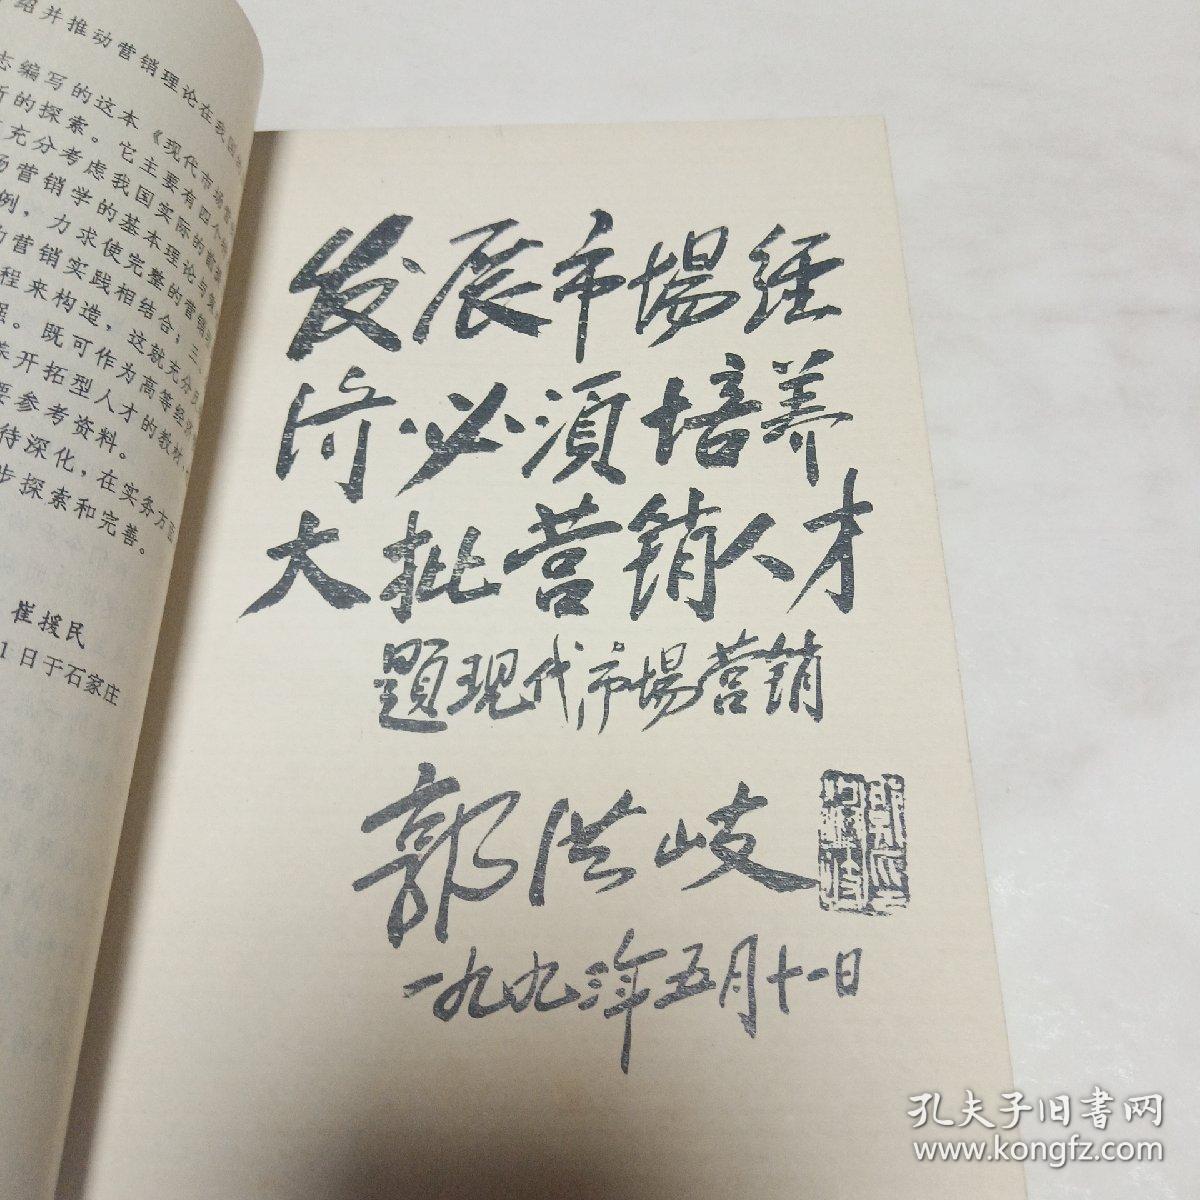 绍并推动营销理论在我国
志编写的这本《现代市场营
新的探索。它主要有四个
充分考虑我国实际的前
场营销学的基本理论与
例，力求使完整的营销
营销实践相结合；三
程来构造，这就充分
强。既可作为高等经济
养开拓型人才的教材，
要参考资料。
待深化，在实务方面
步探索和完善。
崔援民
1日于石家庄
发展市場经
济必須培养
大批营销人才
题现代市場营销
郭洪岐
一九九三年五月十一日
孔夫子旧书网
www.kongfz.com